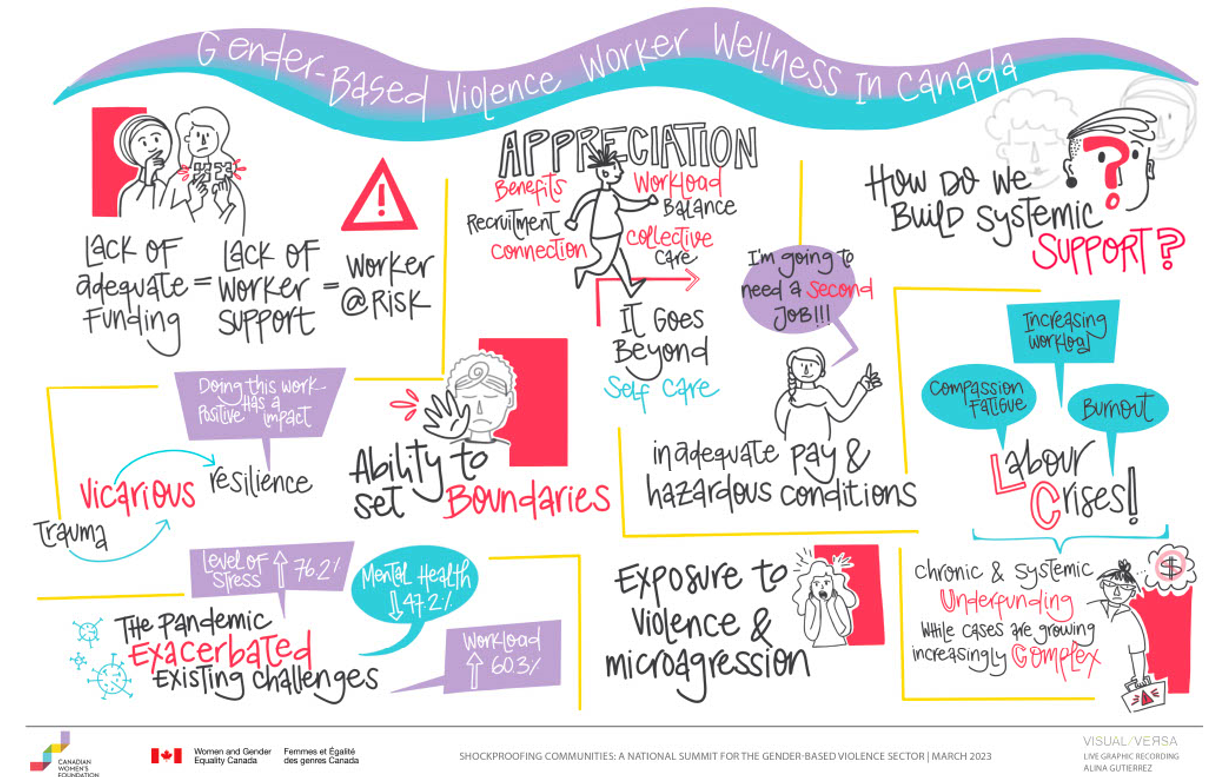 Gender-Based Violence Worker Wellness In Canada
Lack of
adequate
Funding
=
Lack of
Worker
Support
=
Worker
@ Risk
!
APPRECIATION
Benefits
Recruitment
Connection
Workload
Balance
Collective
Care
It Goes
Beyond
Self Care
I'm going to
need a Second
Job!!!
inadequate pay &
hazardous conditions
?
How Do We
Build Systemic
SUPPORT?
Increasing
Workload
Compassion
Fatigue
Burnout
Labour
Crises!
Chronic & Systemic
Underfunding
While cases are growing
increasingly Complex
$
Doing this work
Has a
Positive Impact
Vicarious
resilience
Trauma
Ability to
set Boundaries
Level of
Stress
76.2%
Mental Health
47.2%
Workload
60.3%
The Pandemic
Exacerbated
Existing challenges
Exposure to
Violence &
microagression
CANADIAN
WOMEN'S
FOUNDATION
Women and Gender
Equality Canada
Femmes et Égalité
des genres Canada
SHOCKPROOFING COMMUNITIES: A NATIONAL SUMMIT FOR THE GENDER-BASED VIOLENCE SECTOR | MARCH 2023
VISUAL/VERSA
LIVE GRAPHIC RECORDING
ALINA GUTIERREZ